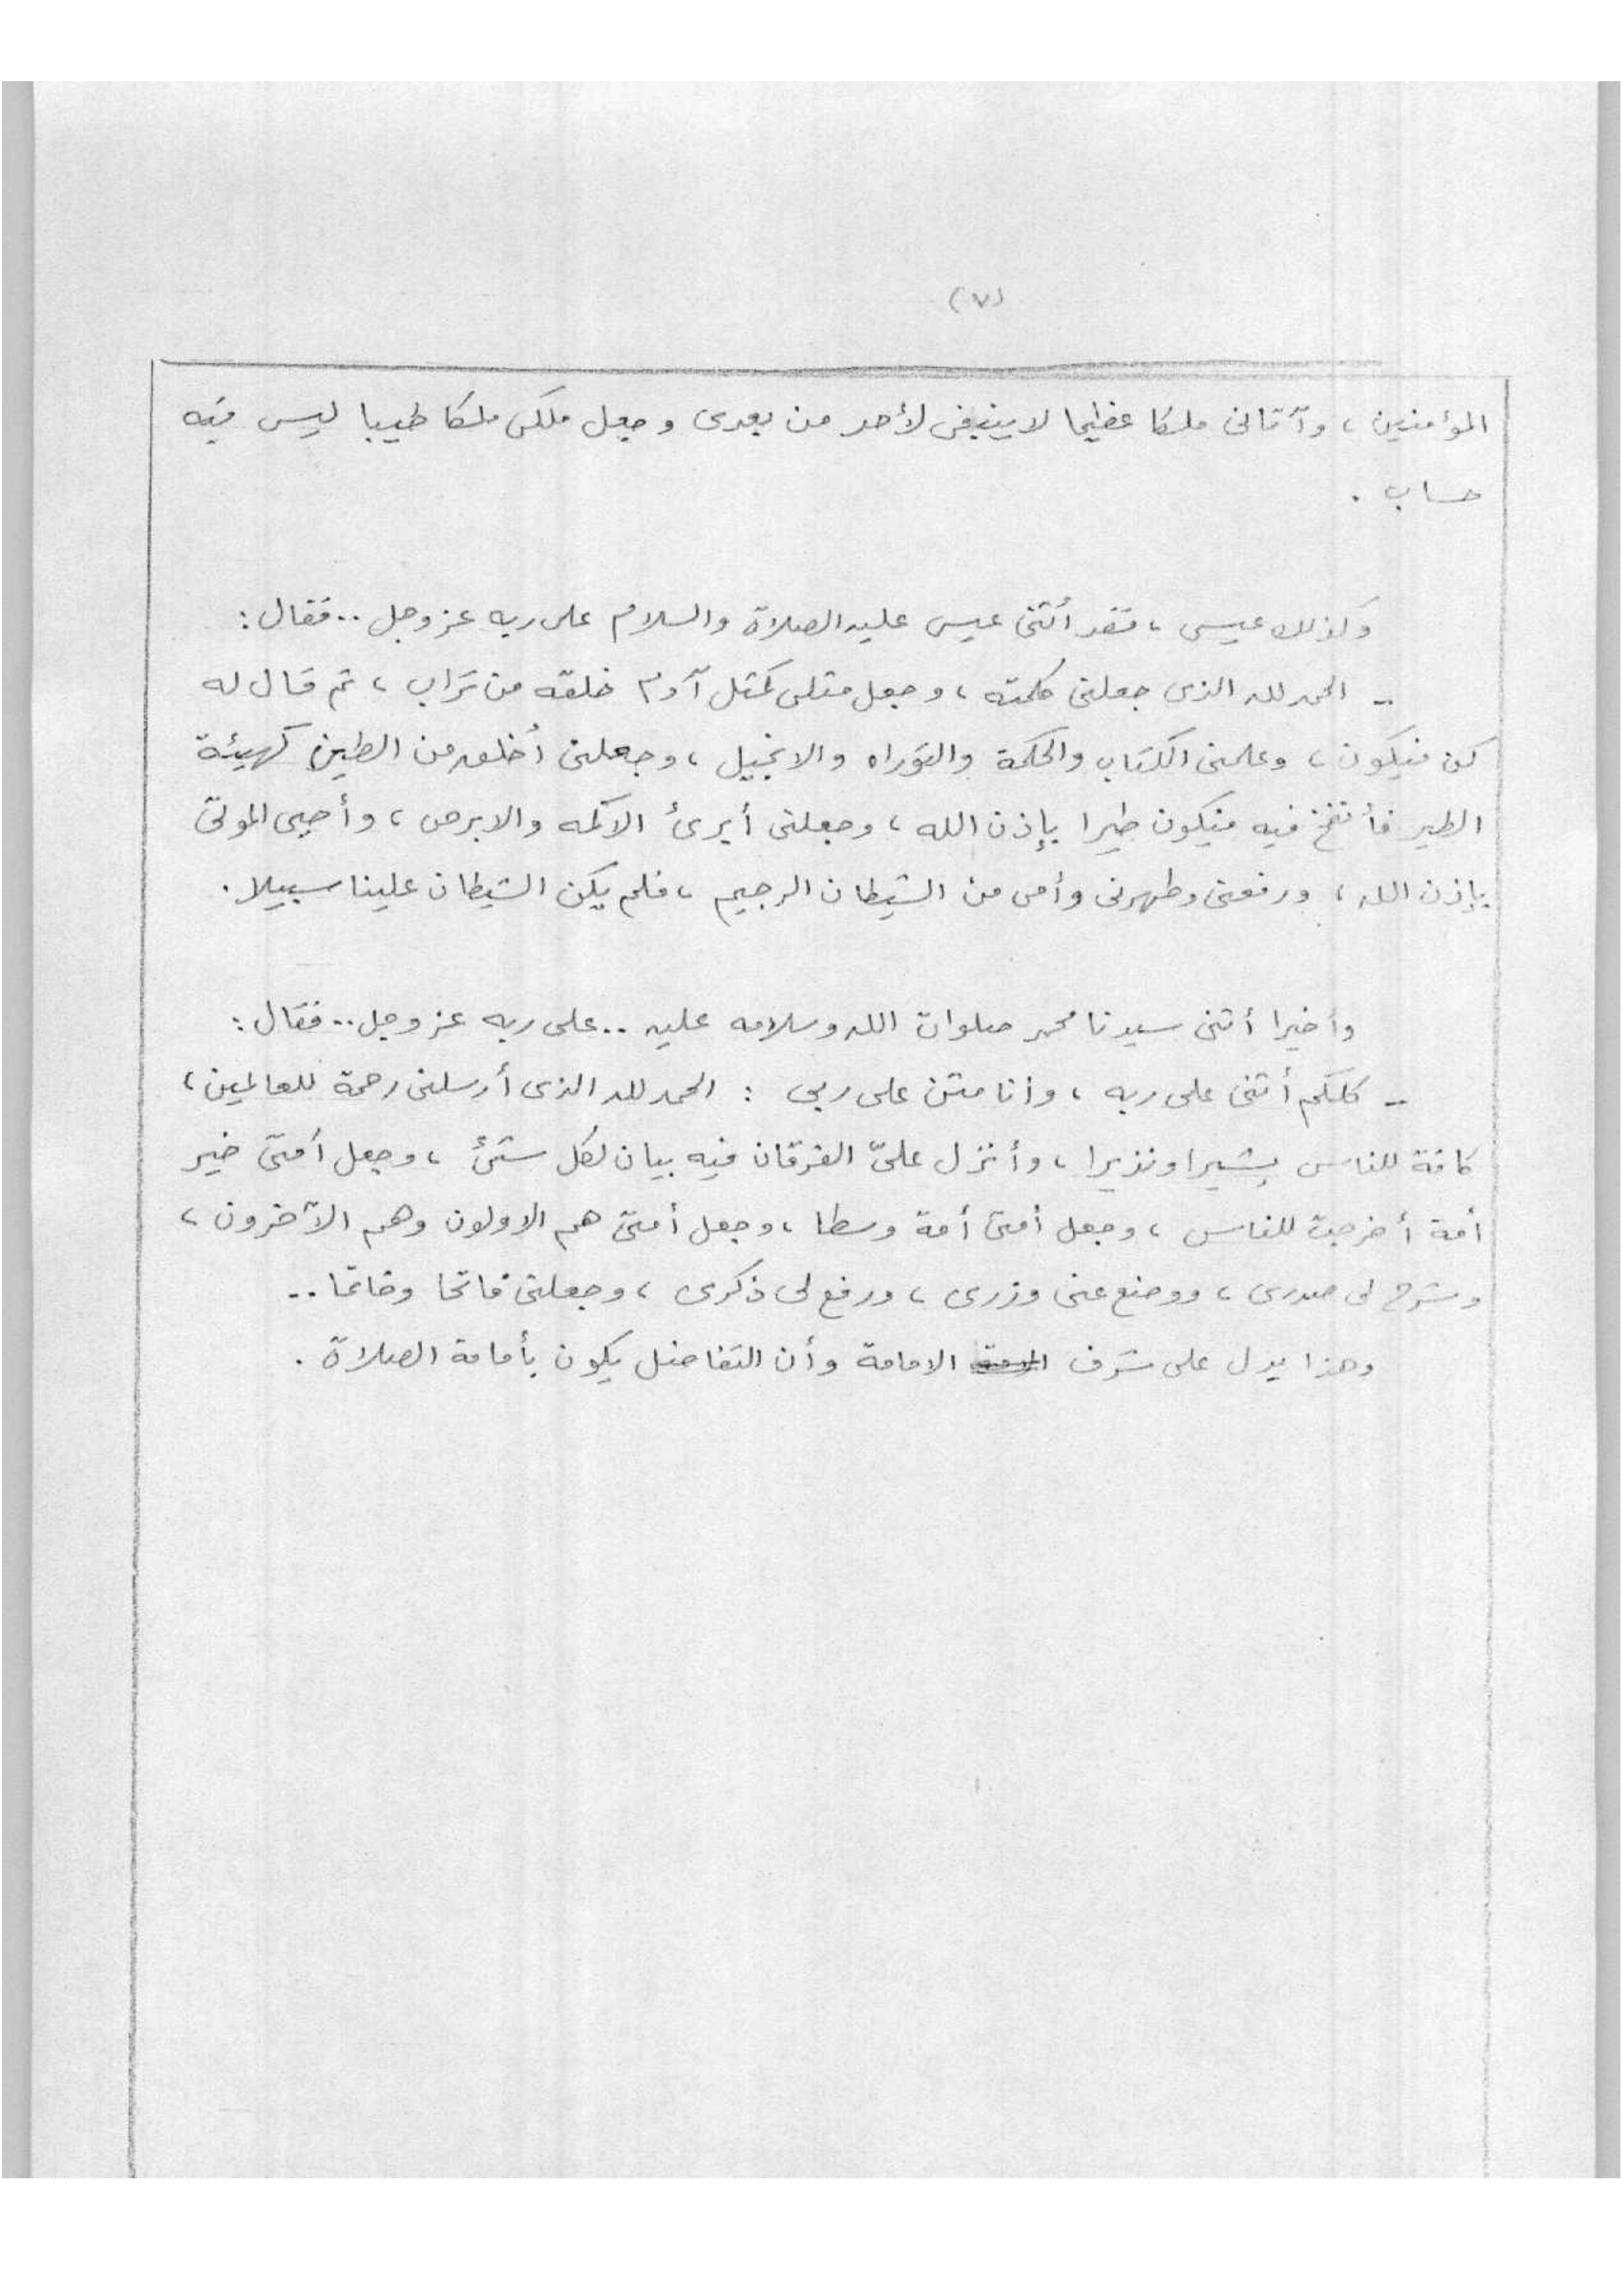 (٧)
المؤمنين ، وآتانى ملكا عظيما لا ينبغى لأحد من بعدى وجعل ملكى ملكا طيبا ليس فيه
حساب .
وكذلك عيسى ، فقد أثنى عيسى عليه الصلاة والسلام على ربه عز وجل .. فقال :
-- الحمد لله الذى جعلنى كلمته ، وجعل مثلى كمثل آدم خلقه من تراب ، ثم قال له
كن فيكون ، وعلمنى الكتاب والحكمة والتوراه والانجيل ، وجعلنى أخلق من الطين كهيئة
الطير فأنفخ فيه فيكون طيرا بإذن الله ، وجعلنى أبرئ الاكمه والابرص ، وأحيى الموتى
بإذن الله ، ورفعنى وطهرنى وأمى من الشيطان الرجيم ، فلم يكن الشيطان علينا سبيلا .
وأخيرا أثنى سيدنا محمد صلوات الله وسلامه عليه .. على ربه عز وجل .. فقال :
-- كلكم أثنى على ربه ، وأنا مثن على ربى : الحمد لله الذى أرسلنى رحمة للعالمين ،
كافة للناس بشيرا ونذيرا ، وأنزل علىّ الفرقان فيه بيان لكل شئ ، وجعل أمتى خير
أمة أخرجت للناس ، وجعل أمتى أمة وسطا ، وجعل أمتى هم الاولون وهم الآخرون ،
وشرح لى صدرى ، ووضع عنى وزرى ، ورفع لى ذكرى ، وجعلنى فاتحا وخاتما ..
وهذا يدل على شرف الامامة وأن التفاضل يكون بأمامة الصلاة .